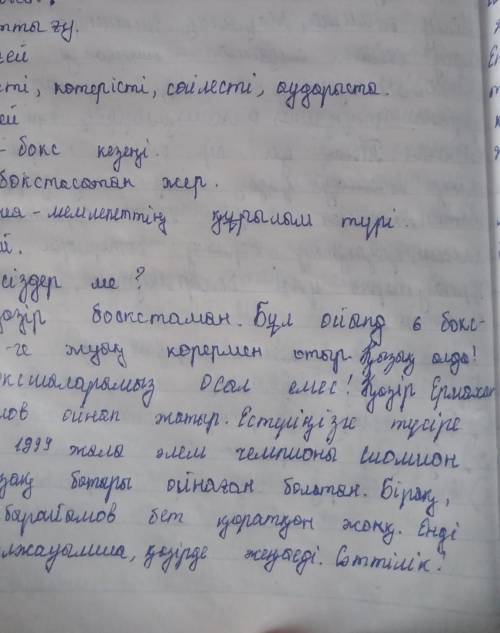 тты ау.
ей
сті, көтерісті, сөйлесті, аударыста.
ей
- бокс кезеңі.
бокстасатан жер.
ша - мемлекеттің құрылым түрі.
й.
сіздер ме?
қазір боскстаман. Бұл ойанд 6 бокс-
-ге жуық көрермен отыр. Қазақ алда!
ксшыларамыз осал емес! Қазір Ермахан
мов ойнап жатыр. Естуіңізге түсіре
1999 жала әлем чемпионы
зақ батыры ойнаған болатан. Бірақ,
барайымов бет қаратқан жоқ. Енді
лжауымша, қазірде жеңыеді. Сәттілік!